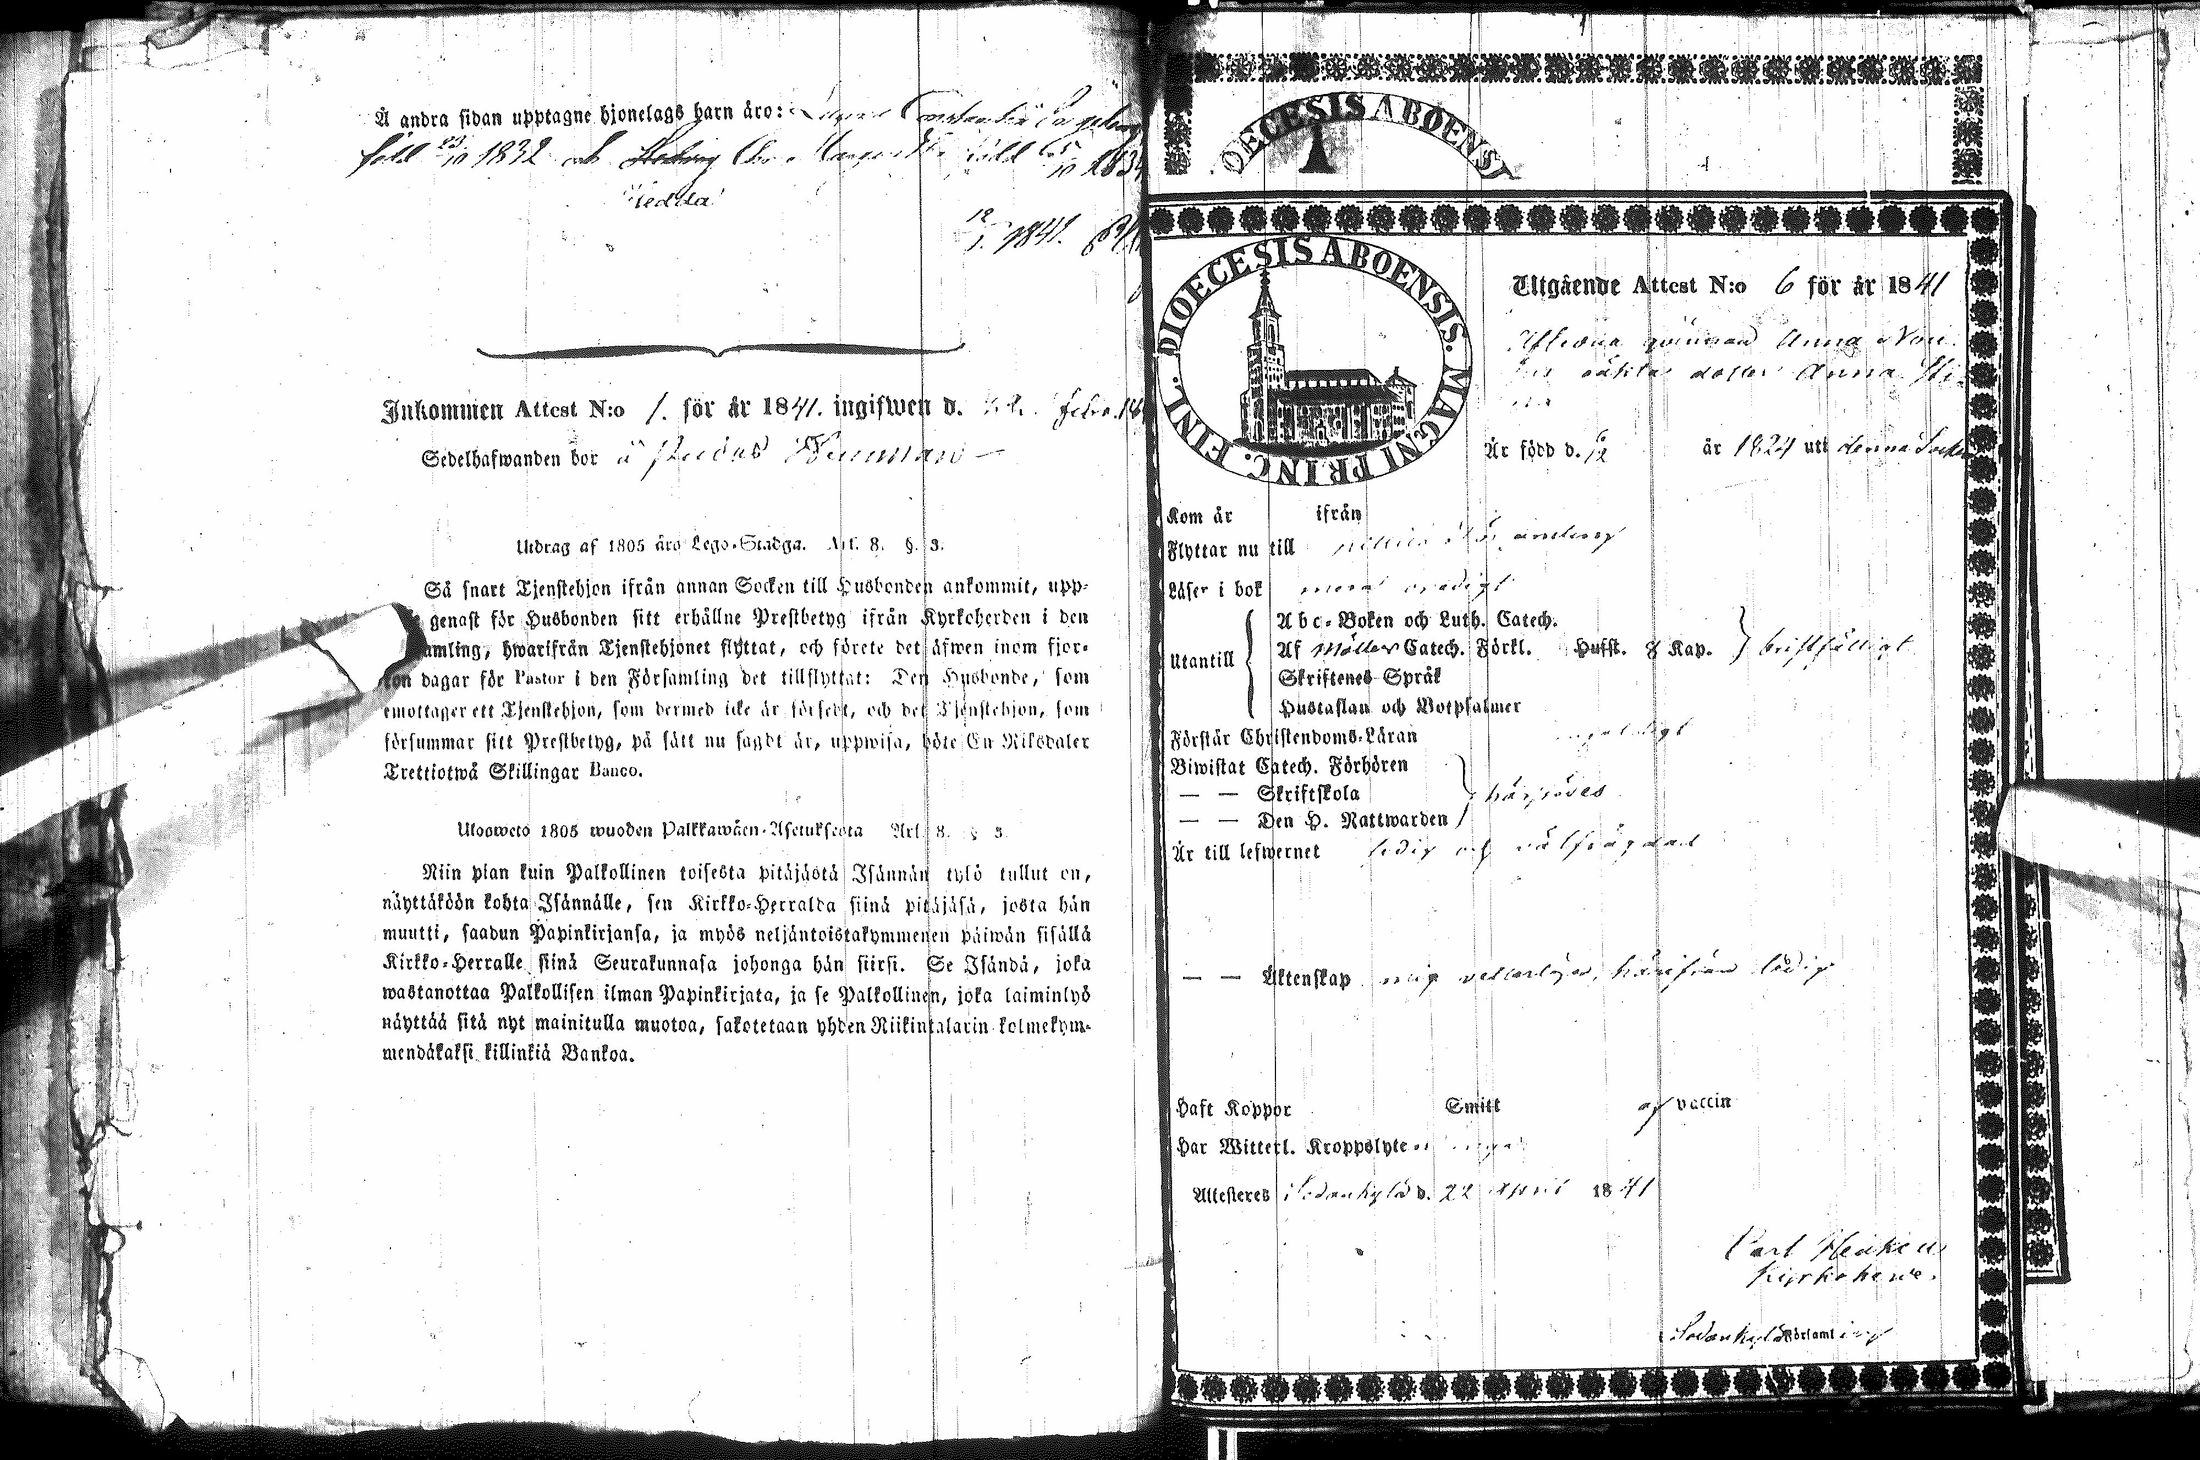 Å andra sidan upptagne hjonelags barn äro:
född 23/10 1832 och född 1834
Hedda
1841.
Inkommen Attest N:o 1. för år 1841. ingifwen d. Febr. 18
Sedelhafwanden bor å
Utdrag af 1805 års Lego-Stadga. Art. 8. §. 3.
Så snart Tjenstehjon ifrån annan Socken till Husbonden ankommit, upp-
genast för Husbonden sitt erhållne Prestbetyg ifrån Kyrkoherden i den
amling, hwarifrån Tjenstehjonet flyttat, och förete det äfwen inom fjor-
ton dagar för Pastor i den Församling det tillflyttat: Den Husbonde, som
emottager ett Tjenstehjon, som dermed icke är försedt, och det Tjenstehjon, som
försummar sitt Prestbetyg, på sätt nu sagdt är, uppwisa, böte En Riksdaler
Trettiotwå Skillingar Banco.
Ulosweto 1805 wuoden Palkkawäen-Asetuksesta Art. 8. § 3.
Niin pian kuin Palkollinen toisesta pitäjästä Isännän tylö tullut on,
näyttäköön kohta Isännälle, sen Kirkko-Herralda siinä pitäjäsä, josta hän
muutti, saadun Papinkirjansa, ja myös neljäntoistakymmenen päiwän sisällä
Kirkko-Herralle siinä Seurakunnasa johonga hän siirsi. Se Isändä, joka
wastanottaa Palkollisen ilman Papinkirjata, ja se Palkollinen, joka laiminlyö
näyttää sitä nyt mainitulla muotoa, sakotetaan yhden Riikintalarin kolmekym-
mendäkaksi killinkiä Bankoa.
OECESIS ABOENS
DIOECESIS ABOENSIS. MAGNI PRINC. FINL.
Utgående Attest N:o 6 för år 1841
qvinnan Anna
dotter Anna
Är född d. år 1824 uti denna Socken
Kom år ifrån
Flyttar nu till
Läser i bok
Abc-Boken och Luth. Catech.
Utantill Af Möllers Catech. Förkl. Hufst. 8 Kap. bristfälligt
Skriftenes Språk
Hustaflan och Botpsalmer
Förstår Christendoms-Läran
Biwistat Catech. Förhören
— — Skriftskola
— — Den H. Nattwarden
Är till lefwernet ledig och välfrägdad
— — Äktenskap mig veterligen, härifrån ledig
Haft Koppor Smitt af vaccin
Har Witterl. Kroppslyte
Attesteres Sodankylä d. 22 April 1841
Carl
Kyrkoherde.
Sodankylä Församling